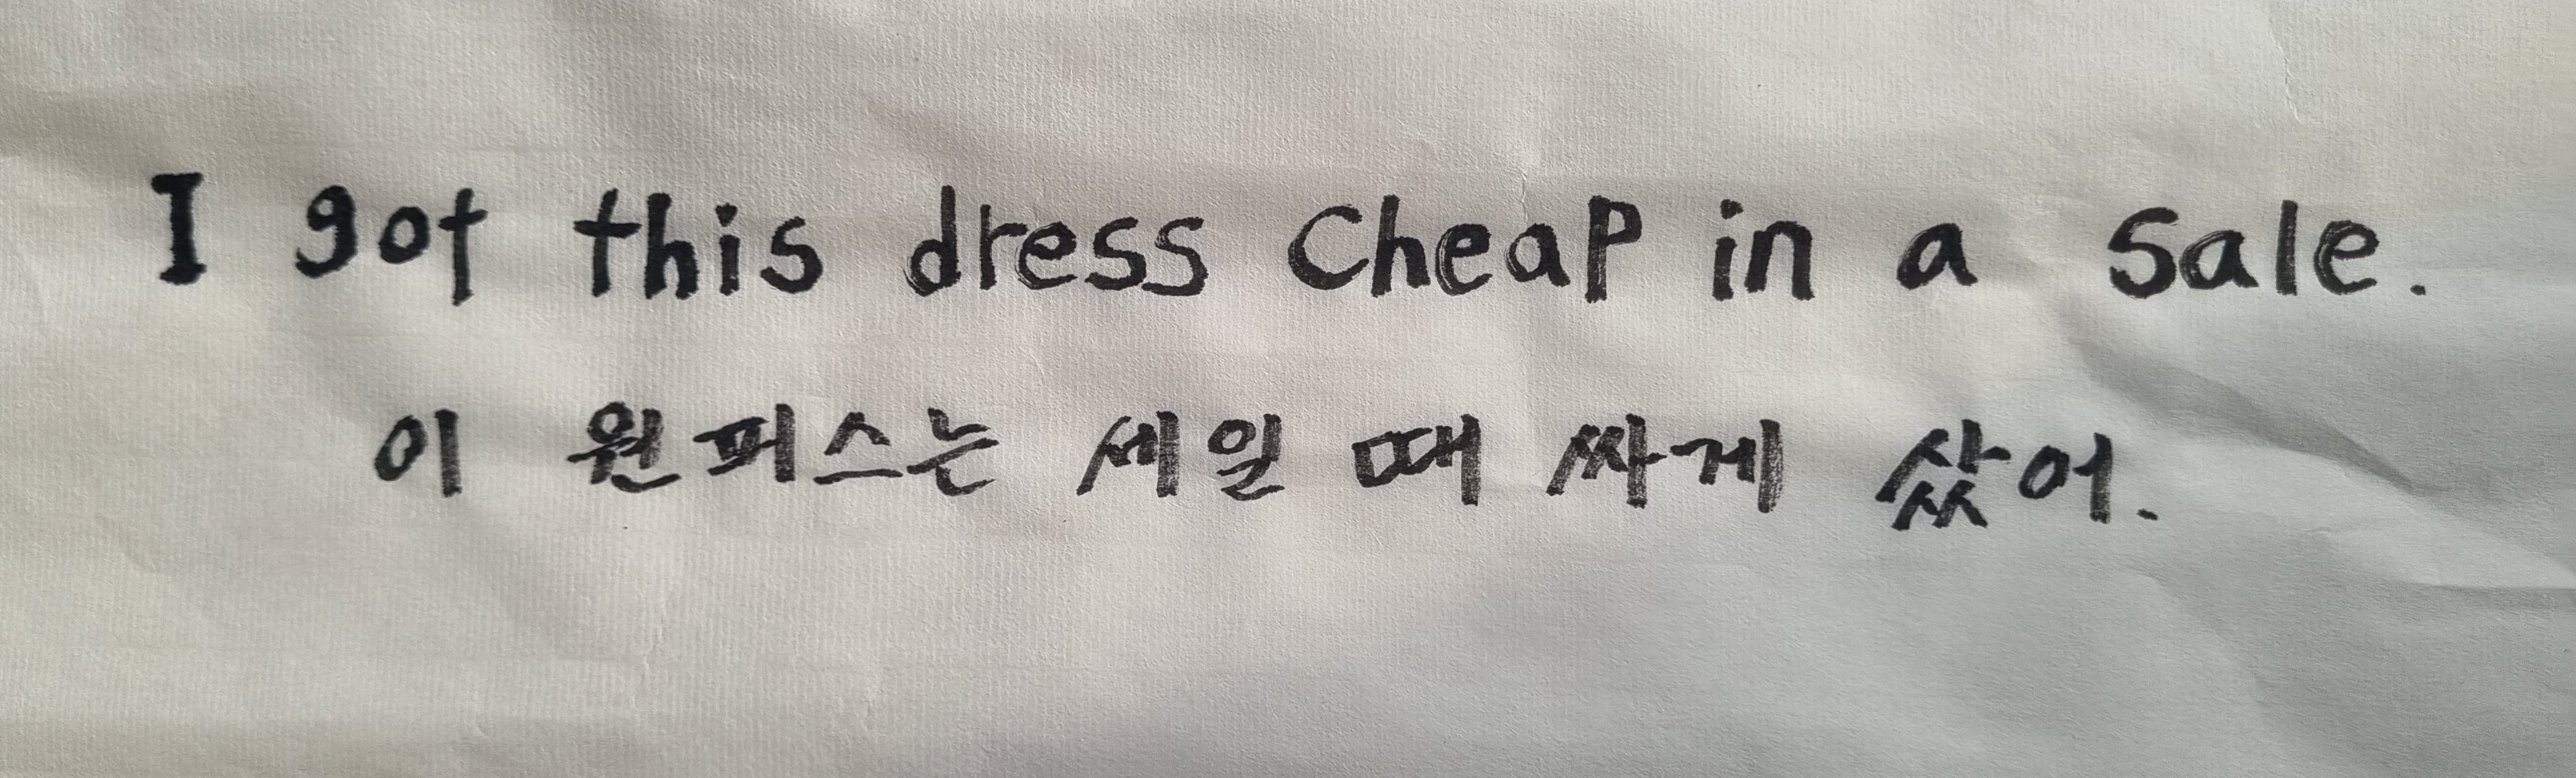 I got this dress cheap in a sale.
이 원피스는 세일 때 싸게 샀어.